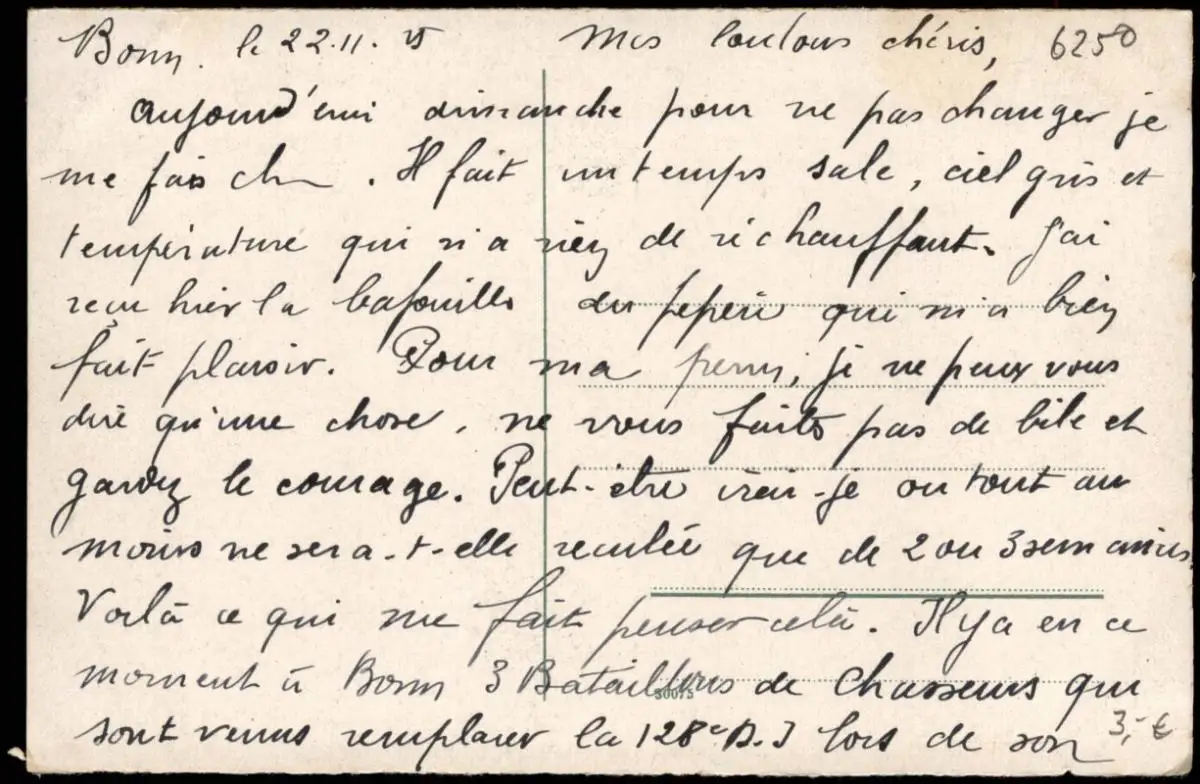 Bonn. le 22.11.25 Mes loulous chéris, 6250
Aujourd'hui dimanche pour ne pas changer je
me fais ch . Il fait un temps sale, ciel gris et
température qui n'a rien de réchauffant. J'ai
reçu hier la bafouille du pépère qui m'a bien
fait plaisir. Pour ma perm, je ne peux vous
dire qu'une chose, ne vous faites pas de bile et
gardez le courage. Peut-être irai-je ou tout au
moins ne sera-t-elle reculée que de 2 ou 3 semaines.
Voilà ce qui me fait penser celà. Il y a en ce
moment à Bonn 3 Bataillons de Chasseurs qui
sont venus remplacer la 128e D.I lors de son
3,- €